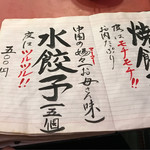 焼餃
皮はモチモチ!!
お肉たっぷり
水餃子(五個)
中国の媽々(お母さん味)
皮はツルツル!!
五〇〇円